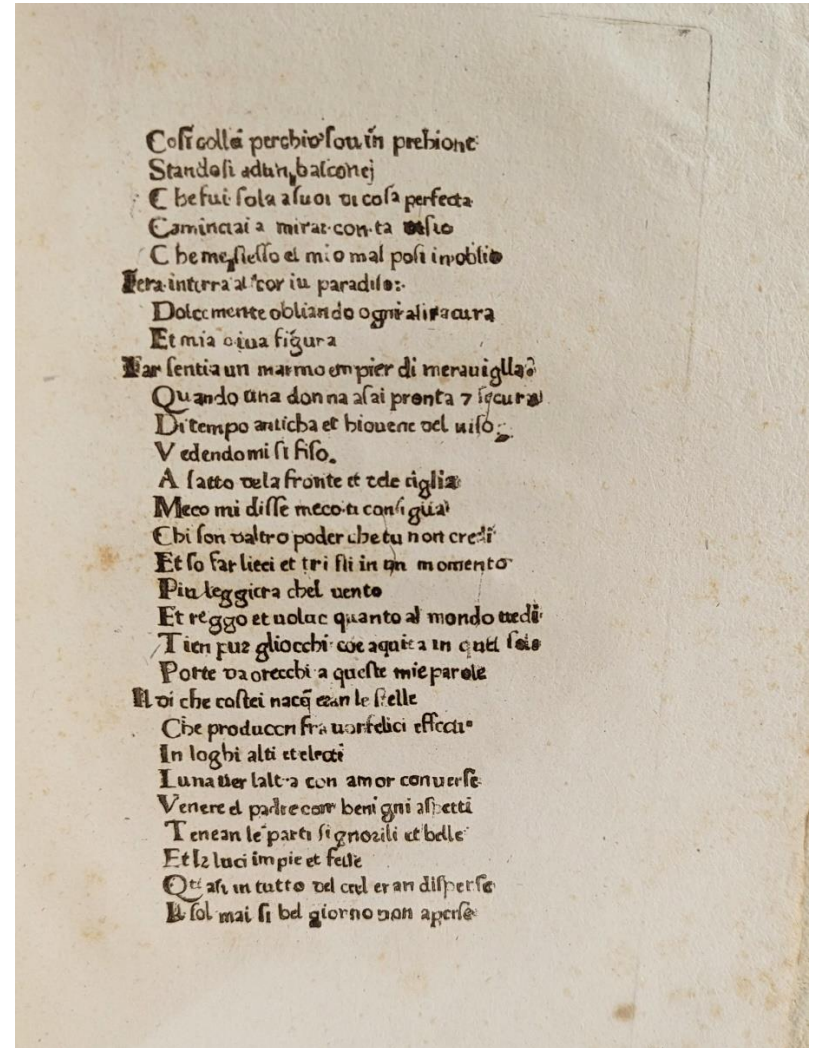 Cosi colla perchio sou in prehione
Standosi adun balconej
Che fui sola a suoi di cosa perfecta
Caminciai a mirar con ta
Che me stesso el mio mal posi in oblio
era interra al cor iu paradiso:
Dolcemente obliando ogni altra cura
Et mia uiua figura
Far sentia un marmo empier di merauiglla
Quando una donna asai pronta 7 secura
Di tempo anticha et biouene del uiso
Vedendomi si fiso.
A latto dela fronte et dele ciglia
Meco mi disse meco ti consiglia
Chi son daltro poder che tu non credi
Et so far lieci et tristi in un momento
Piu leggiera chel uento
Et reggo et uoluc quanto al mondo uedi
Tien pur gliocchi coe aquila in quel sole
Porte da orecchi a queste mie parole
Il di che costei nacq̄ eran le stelle
Che producen fra uoi felici effecti
In loghi alti et electi
Luna uer laltra con amor conuerse
Venere el padre com benigni aspetti
Tenean le parti signorili et belle
Et le luci impie et felle
Quasi in tutto del ciel eran disperse
Il sol mai si bel giorno non aperse